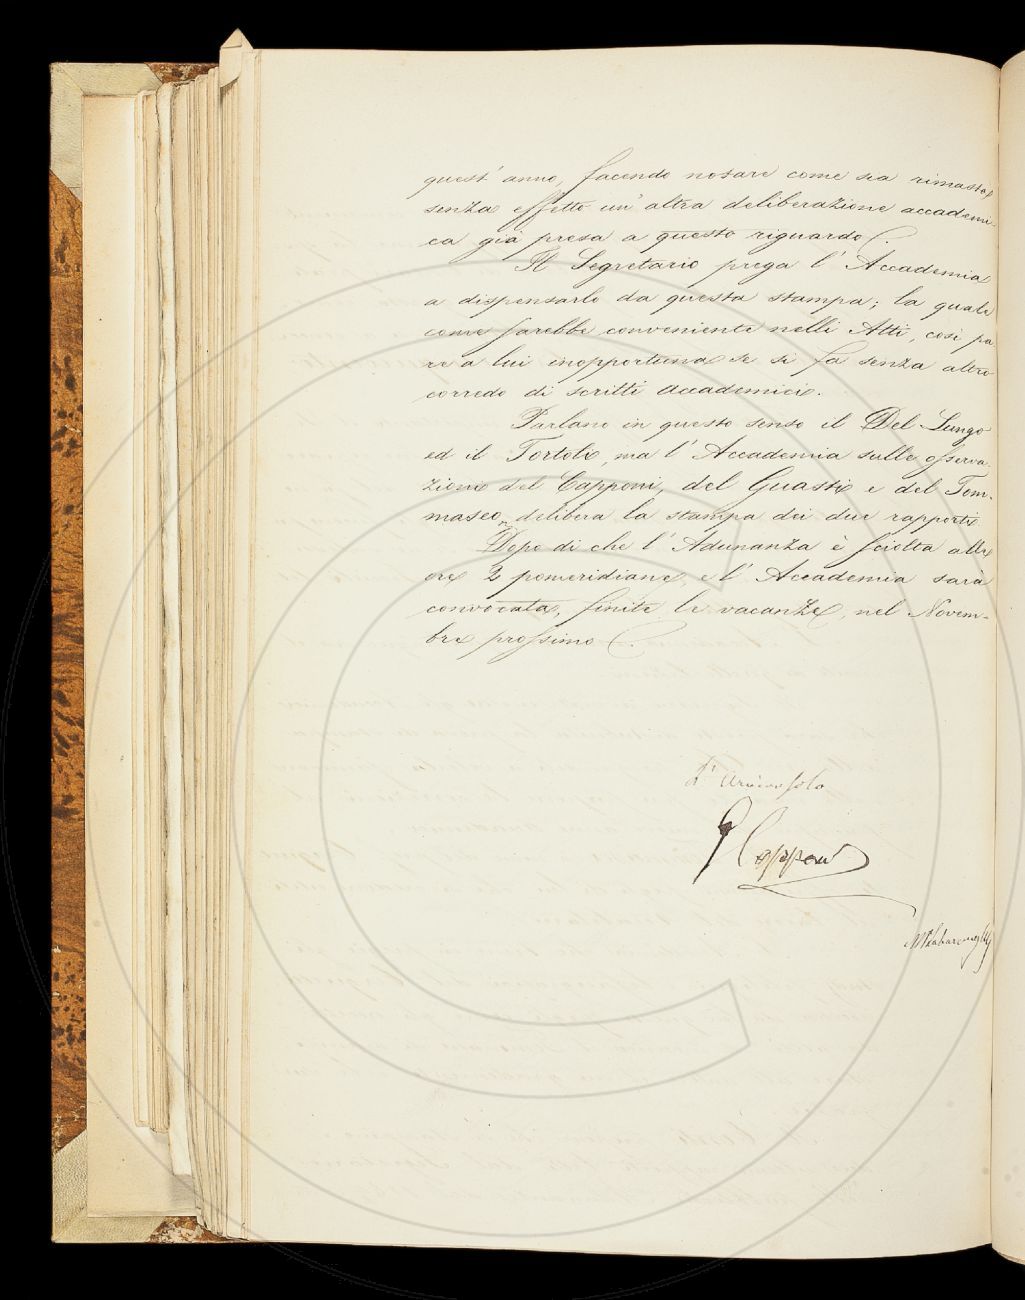 quest' anno, facendo notare come sia rimasta
senza effetto un' altra deliberazione accademi-
ca già presa a questo riguardo.
Il Segretario prega l' Accademia
a dispensarlo da questa stampa; la quale
come sarebbe conveniente nelli Atti, così pa
re a lui inopportuna se si fa senza altro
corredo di scritti accademici.
Parlano in questo senso il Del Lungo
ed il Tortoli, ma l' Accademia sulle osserva-
zioni del Capponi, del Guasti e del Tom-
maseo, delibera la stampa dei due rapporti.
Dopo di che l' Adunanza è sciolta alle
ore 2 pomeridiane, e l' Accademia sarà
convocata, finite le vacanze, nel Novem-
bre prossimo.
L' Arciconsolo
G Capponi